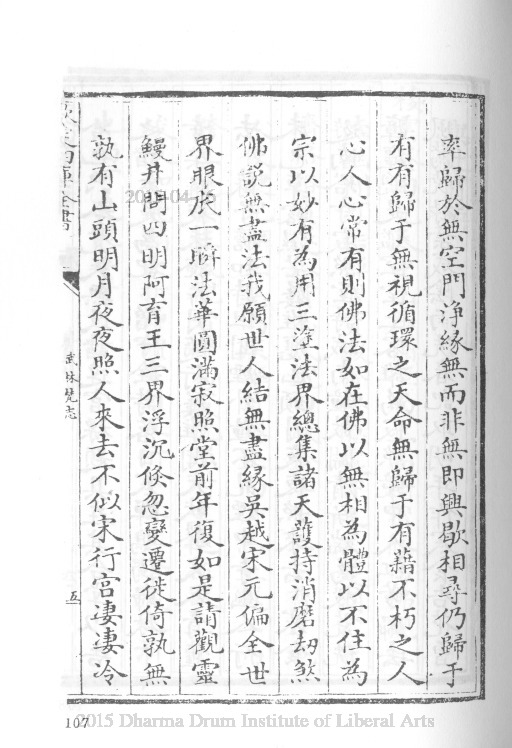 率歸於無空門浄緣無而非無即興歇相尋仍歸于
有有歸于無視循環之天命無歸于有藉不朽之人
心人心常有則佛法如在佛以無相為體以不住為
宗以妙有為用三塗法界總集諸天護持消磨劫煞
佛説無盡法我願世人結無盡緣吳越宋元偏全世
界眼底一瞬法華圓滿寂照堂前年復如是請觀靈
鰻井問四明阿育王三界浮沉倐忽變遷徙倚孰無
孰有山頭明月夜夜照人來去不似宋行宮凄凄冷
武林梵志
五
107
2015 Dharma Drum Institute of Liberal Arts